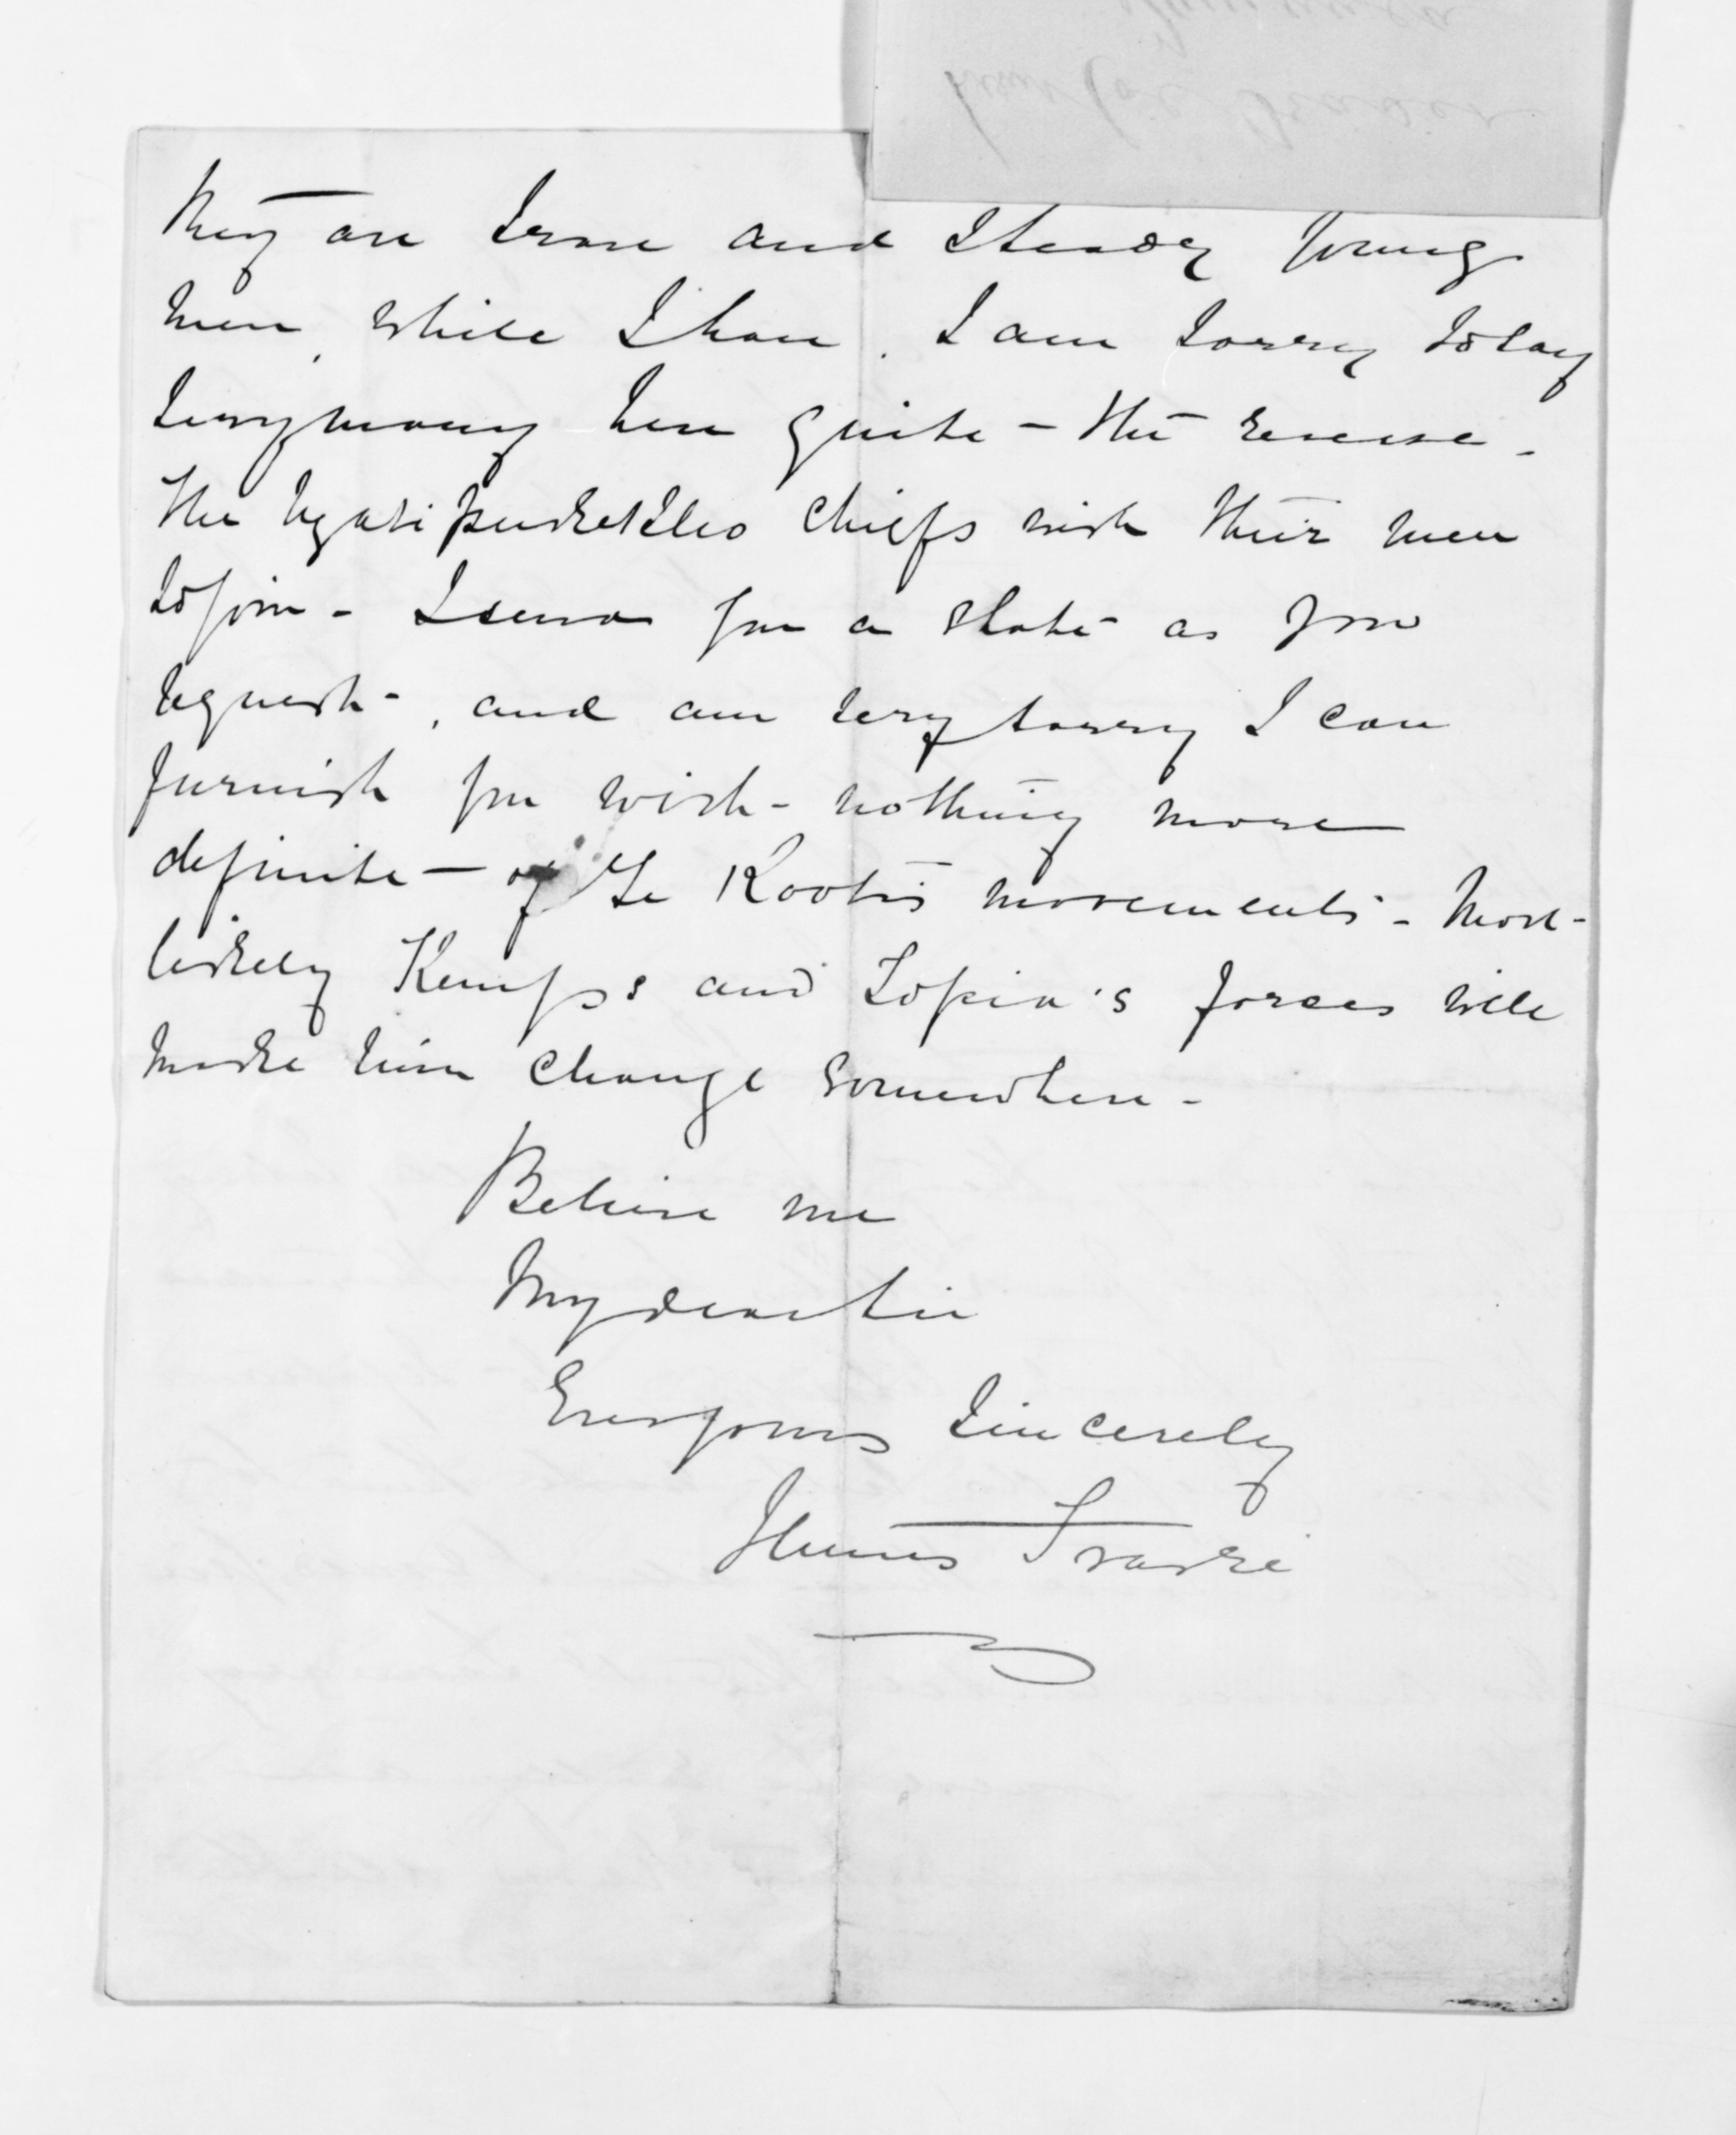 They are brave and steady young
men, while I have, I am sorry to say
very many here quite the reverse -
The Ngatipukeko chiefs wish their men
to join - I send you a state as you
request, and am very sorry I can
furnish you with nothing more
definite of Te Kooti's movements - Most
likely Kemp's and Topia's forces will
make him change somewhere -
Believe me
My dear Sir
Ever yours Sincerely
James Fraser